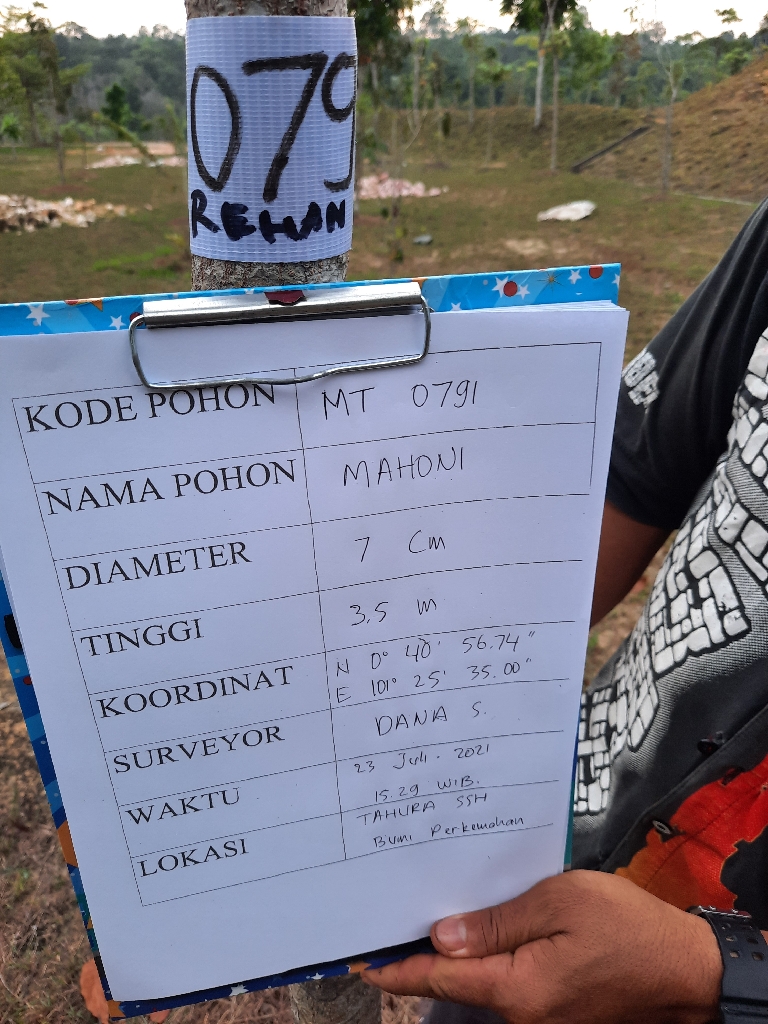 079
REHAN
KODE POHON MT 0791
NAMA POHON MAHONI
DIAMETER 7 Cm
TINGGI 3.5 m
KOORDINAT N 0° 40' 56.74"
E 101° 25' 35.00"
SURVEYOR DANA S.
WAKTU 23 Juli - 2021
15.29 WIB.
LOKASI TAHURA SSH
Bumi Perkemahan